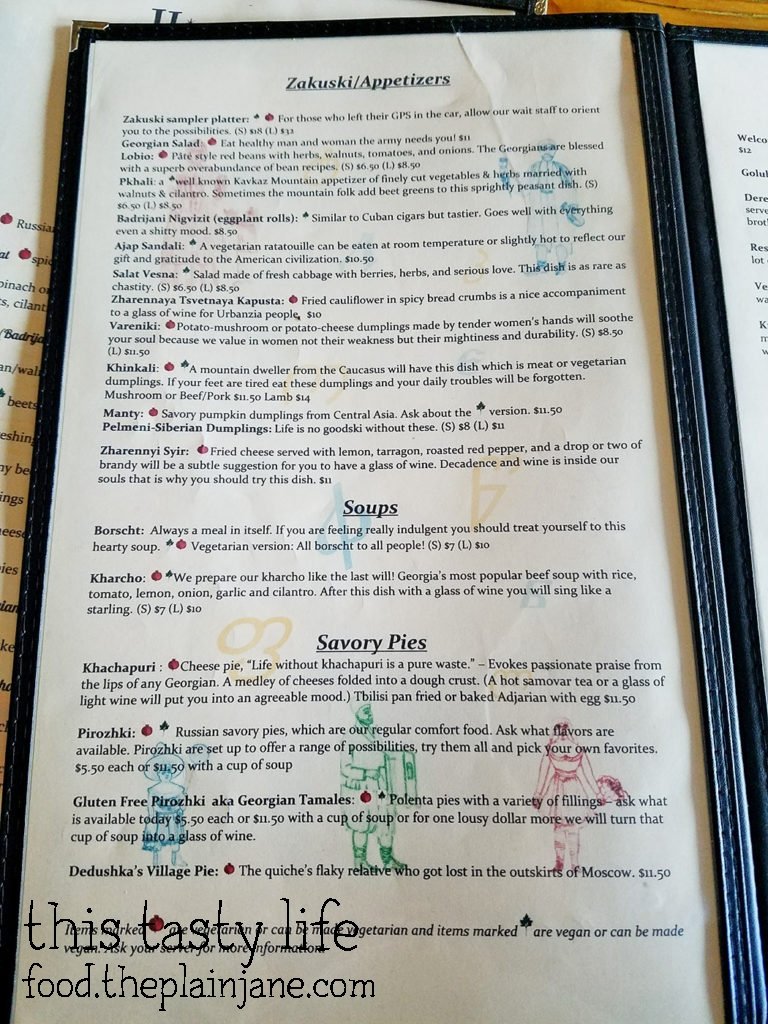 Zakuski/Appetizers
Zakuski sampler platter: For those who left their GPS in the car, allow our wait staff to orient
you to the possibilities. (S) $18 (L) $32
Georgian Salad: Eat healthy man and woman the army needs you! $11
Lobio: Pâté style red beans with herbs, walnuts, tomatoes, and onions. The Georgians are blessed
with a superb overabundance of bean recipes. (S) $6.50 (L) $8.50
Pkhali: a well known Kavkaz Mountain appetizer of finely cut vegetables & herbs married with
walnuts & cilantro. Sometimes the mountain folk add beet greens to this sprightly peasant dish. (S)
$6.50 (L) $8.50
Badrijani Nigvizit (eggplant rolls): Similar to Cuban cigars but tastier. Goes well with everything
even a shitty mood. $8.50
Ajap Sandali: A vegetarian ratatouille can be eaten at room temperature or slightly hot to reflect our
gift and gratitude to the American civilization. $10.50
Salat Vesna: Salad made of fresh cabbage with berries, herbs, and serious love. This dish is as rare as
chastity. (S) $6.50 (L) $8.50
Zharennaya Tsvetnaya Kapusta: Fried cauliflower in spicy bread crumbs is a nice accompaniment
to a glass of wine for Urbanzia people. $10
Vareniki: Potato-mushroom or potato-cheese dumplings made by tender women's hands will soothe
your soul because we value in women not their weakness but their mightiness and durability. (S) $8.50
(L) $11.50
Khinkali: A mountain dweller from the Caucasus will have this dish which is meat or vegetarian
dumplings. If your feet are tired eat these dumplings and your daily troubles will be forgotten.
Mushroom or Beef/Pork $11.50 Lamb $14
Manty: Savory pumpkin dumplings from Central Asia. Ask about the version. $11.50
Pelmeni-Siberian Dumplings: Life is no goodski without these. (S) $8 (L) $11
Zharennyi Syir: Fried cheese served with lemon, tarragon, roasted red pepper, and a drop or two of
brandy will be a subtle suggestion for you to have a glass of wine. Decadence and wine is inside our
souls that is why you should try this dish. $11
Soups
Borscht: Always a meal in itself. If you are feeling really indulgent you should treat yourself to this
hearty soup. Vegetarian version: All borscht to all people! (S) $7 (L) $10
Kharcho: We prepare our kharcho like the last will! Georgia's most popular beef soup with rice,
tomato, lemon, onion, garlic and cilantro. After this dish with a glass of wine you will sing like a
starling. (S) $7 (L) $10
Savory Pies
Khachapuri : Cheese pie, "Life without khachapuri is a pure waste." – Evokes passionate praise from
the lips of any Georgian. A medley of cheeses folded into a dough crust. (A hot samovar tea or a glass of
light wine will put you into an agreeable mood.) Tbilisi pan fried or baked Adjarian with egg $11.50
Pirozhki: Russian savory pies, which are our regular comfort food. Ask what flavors are
available. Pirozhki are set up to offer a range of possibilities, try them all and pick your own favorites.
$5.50 each or $11.50 with a cup of soup
Gluten Free Pirozhki aka Georgian Tamales: Polenta pies with a variety of fillings – ask what
is available today $5.50 each or $11.50 with a cup of soup or for one lousy dollar more we will turn that
cup of soup into a glass of wine.
Dedushka's Village Pie: The quiche's flaky relative who got lost in the outskirts of Moscow. $11.50
Items marked are vegetarian or can be made vegetarian and items marked are vegan or can be made
vegan. Ask your server for more information!
this tasty life
food.theplainjane.com
Russian
spic
beets
Welco
$12
Golub
Dere
serve
brot
Res
lot
Ve
wa